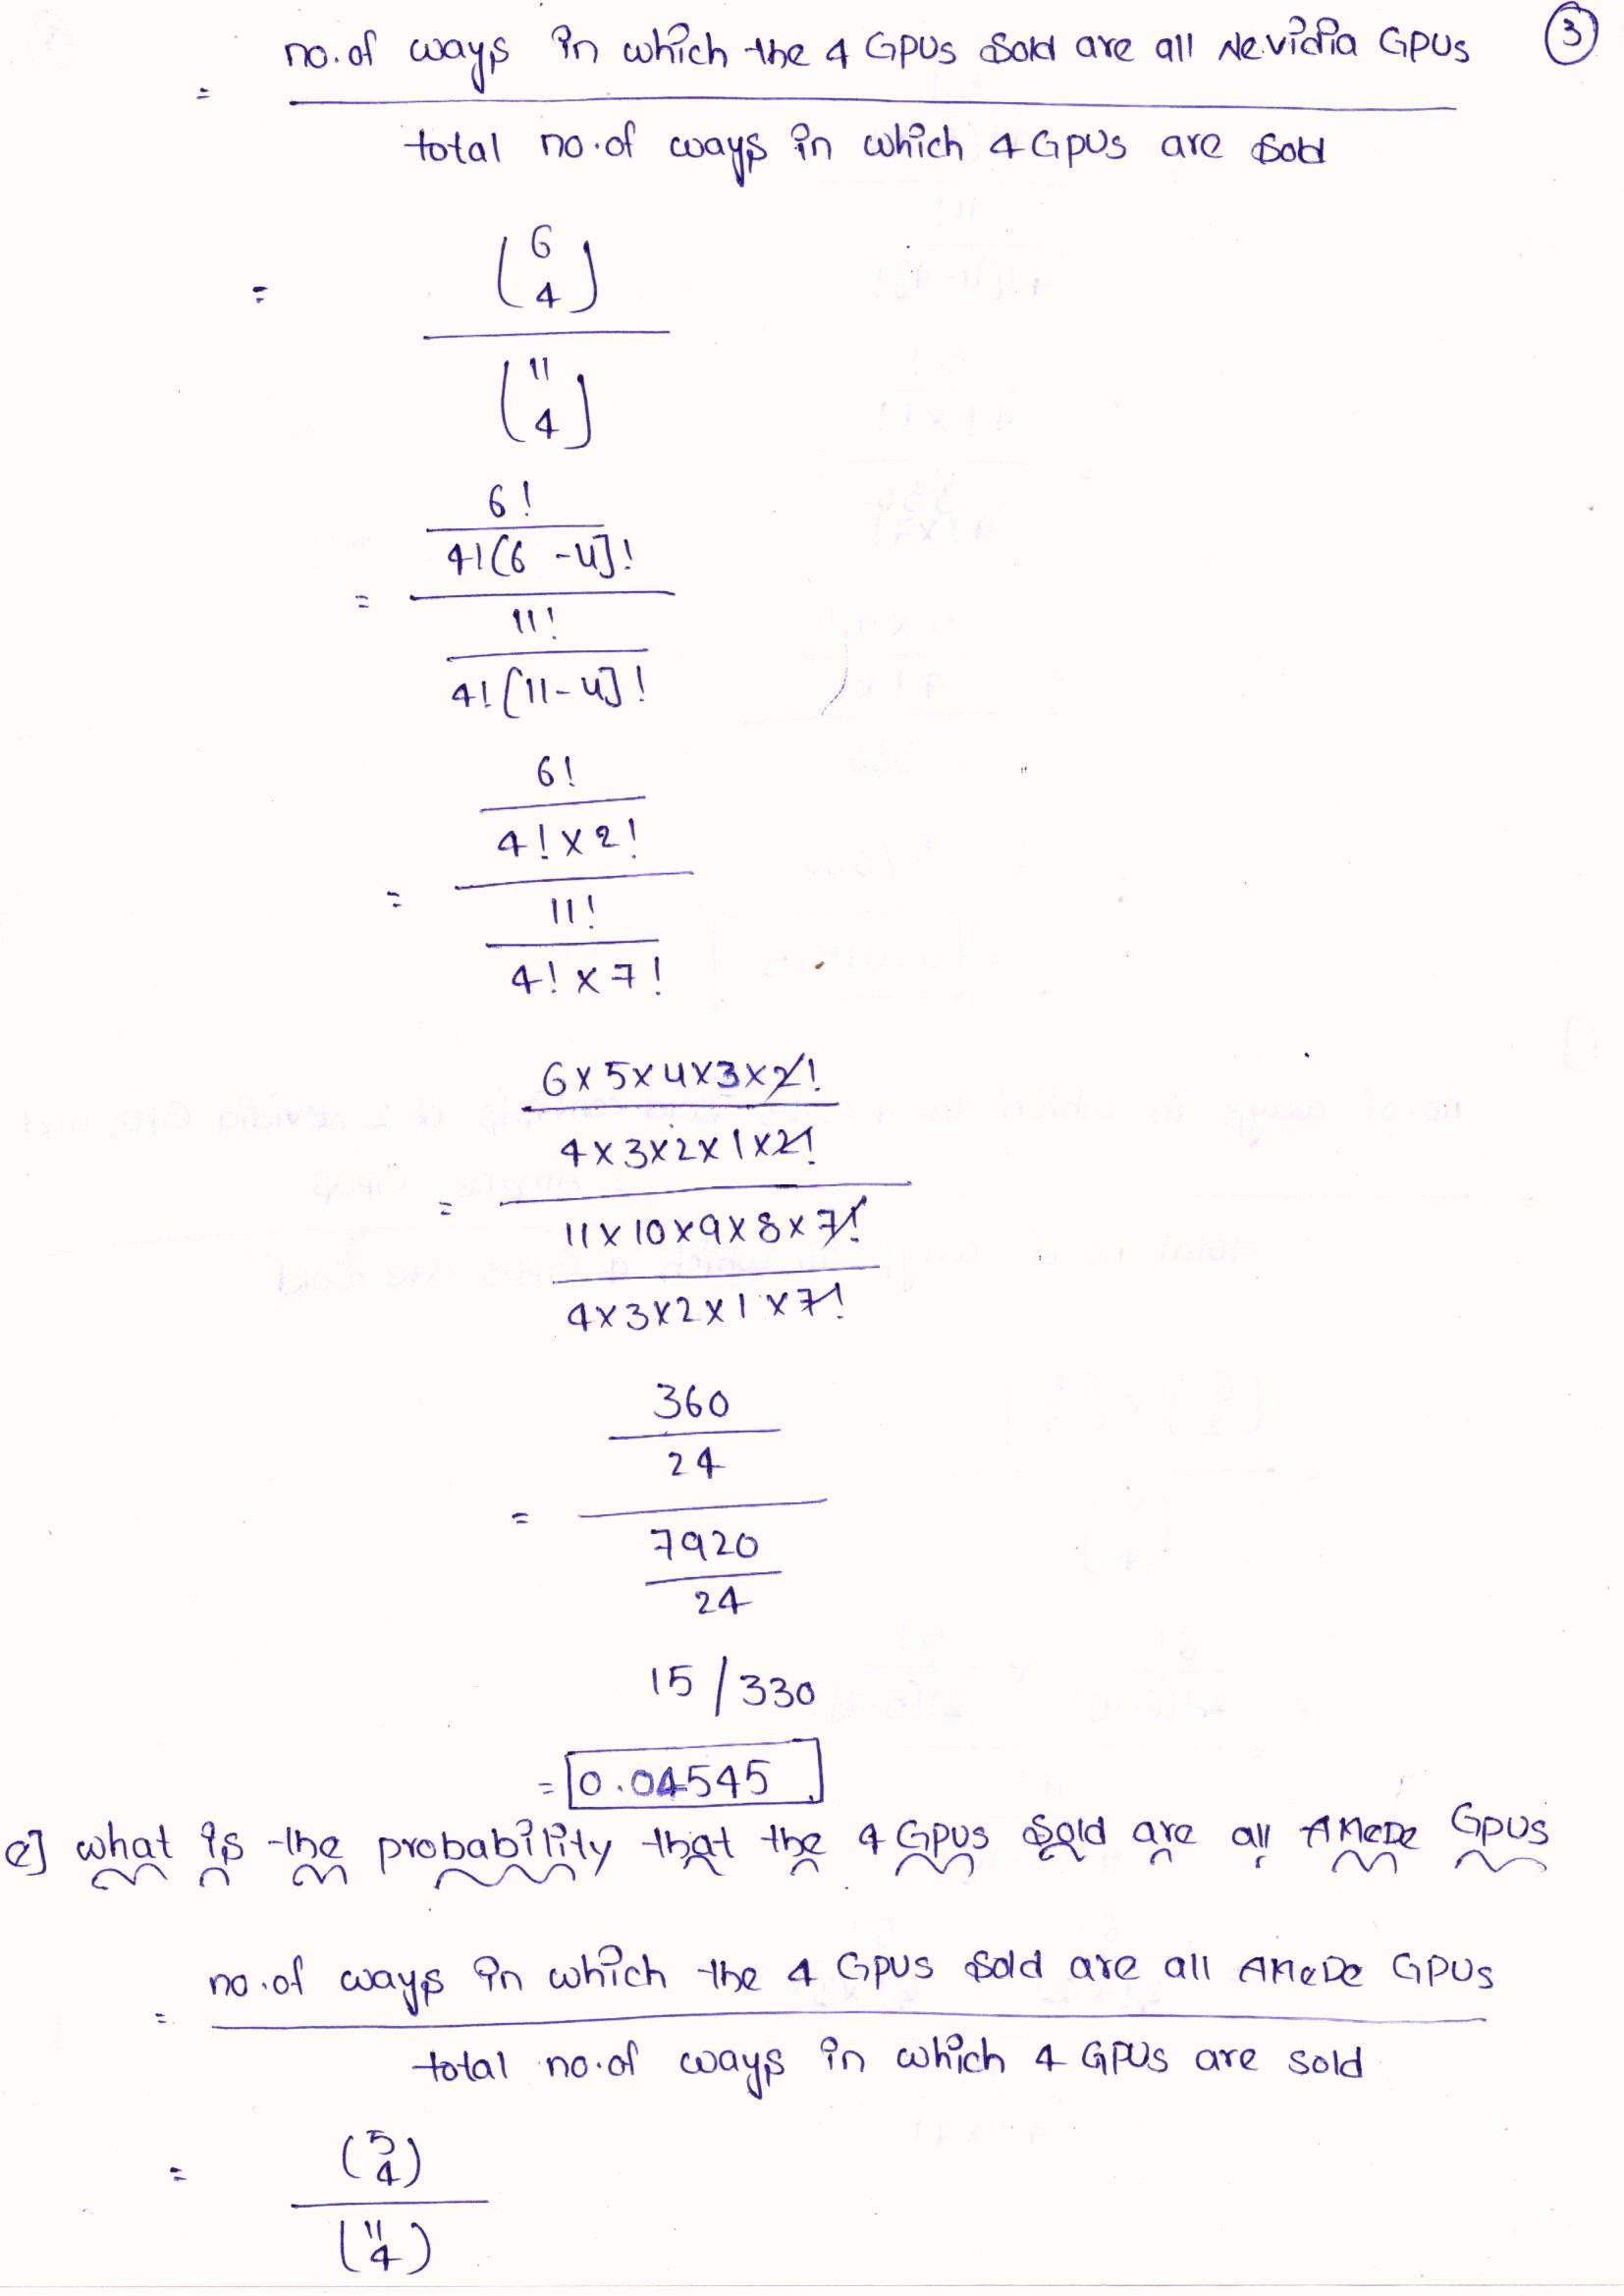 no. of ways in which the 4 GPUs Sold are all Nevidia GPUs
3
=
total no. of ways in which 4 GPUs are Sold
= (6 4)
(11 4)
6!
4!(6-4]!
=
11!
4![11-4]!
6!
4! x 2!
=
11!
4! x 7!
6x5x4x3x2!
4x3x2x1x2!
=
11x10x9x8x7!
4x3x2x1x7!
360
24
=
7920
24
15/330
= 0.04545
e] what is the probability that the 4 GPUs Sold are all AMeDe GPUs
no. of ways in which the 4 GPUs Sold are all AMeDe GPUs
=
total no. of ways in which 4 GPUs are sold
= (5 4)
(11 4)